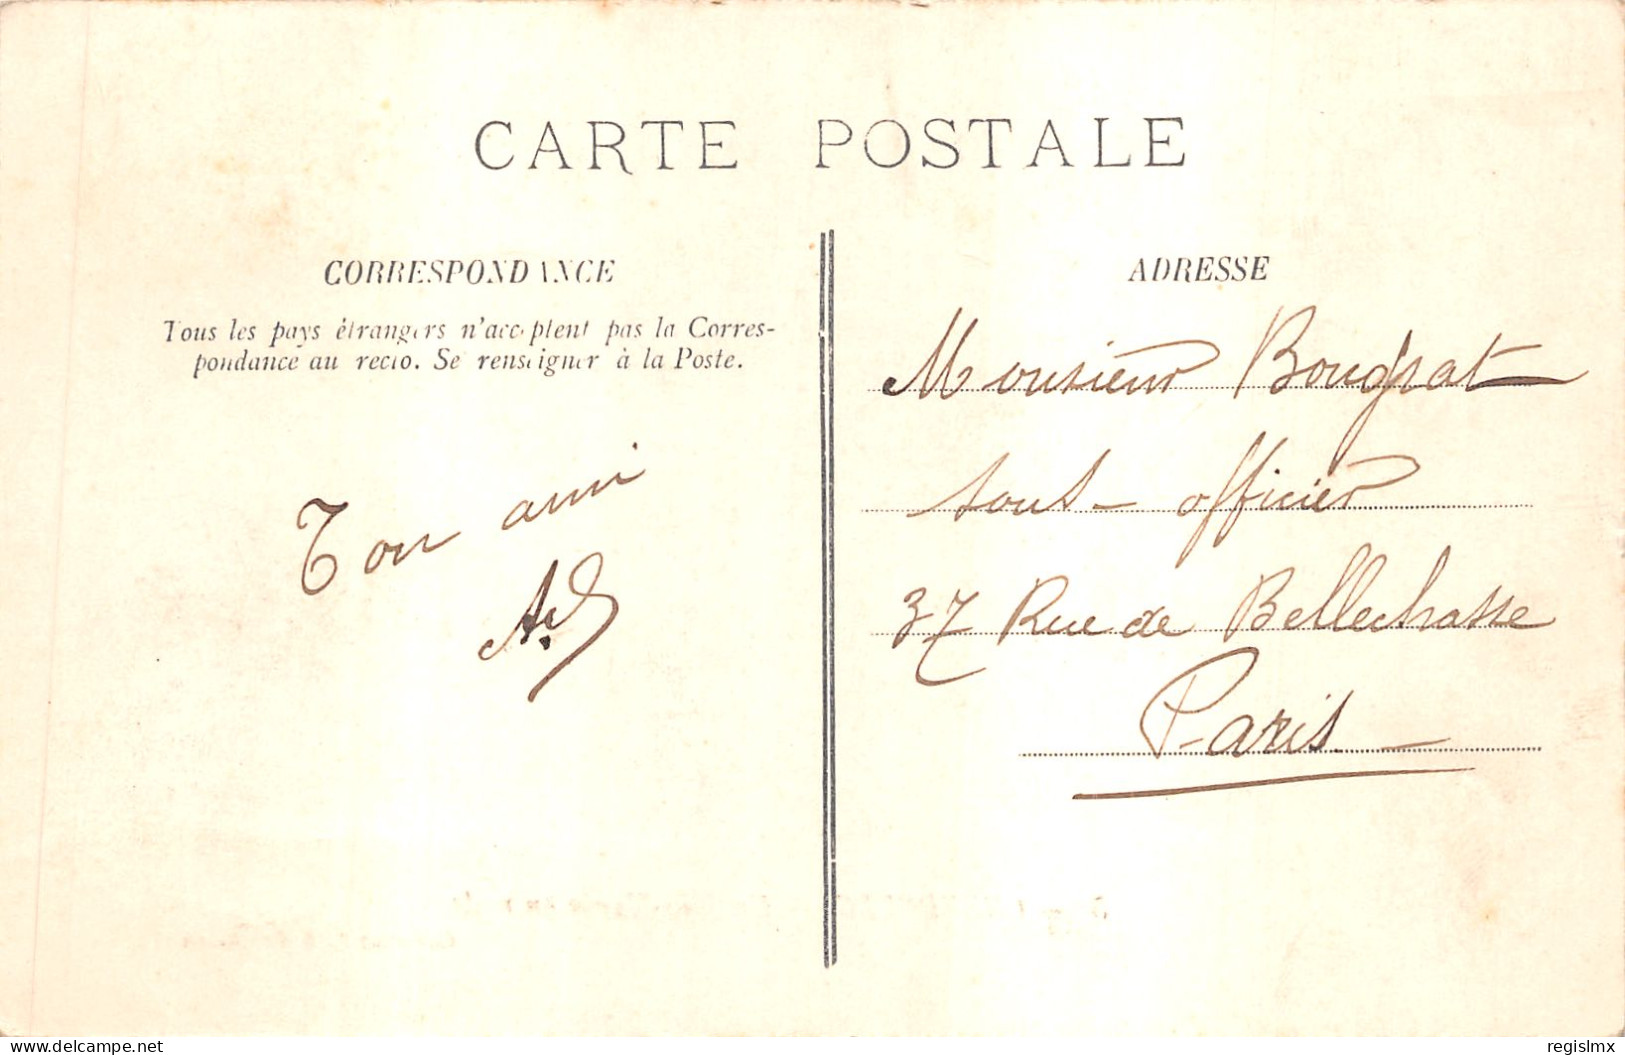 CARTE POSTALE
CORRESPONDANCE
Tous les pays étrangers n'acceptent pas la Corres-
pondance au recto. Se renseigner à la Poste.
Ton ami
ADRESSE
Monsieur Bougrat
sous-officier
37 Rue de Bellechasse
Paris
delcampe.net
regislmx